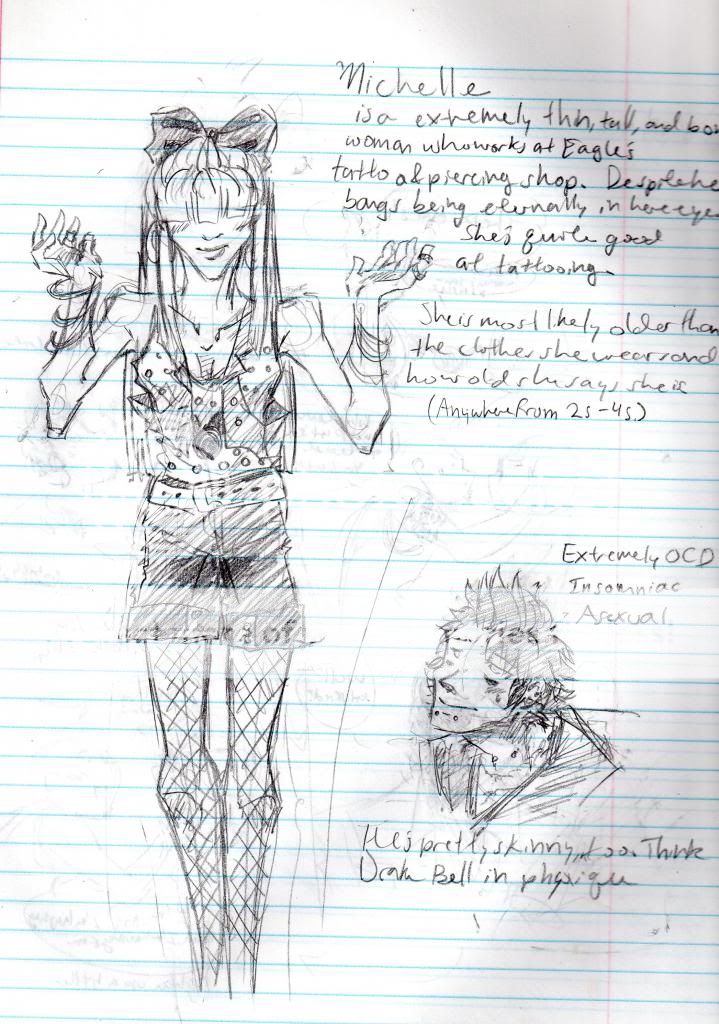 Michelle
is a extremely thin, tall, and bon
woman who works at Eagle's
tatto & piercing shop. Despite he
bangs being eternally in her eyes
She's quite good
at tattooing.
She is most likely older than
the clothes she wears and
how old she says she is
(Anywhere from 25-45.)
Extremely OCD
Insomniac
- Asexual
He's pretty skinny, too. Think
Drake Bell in physique